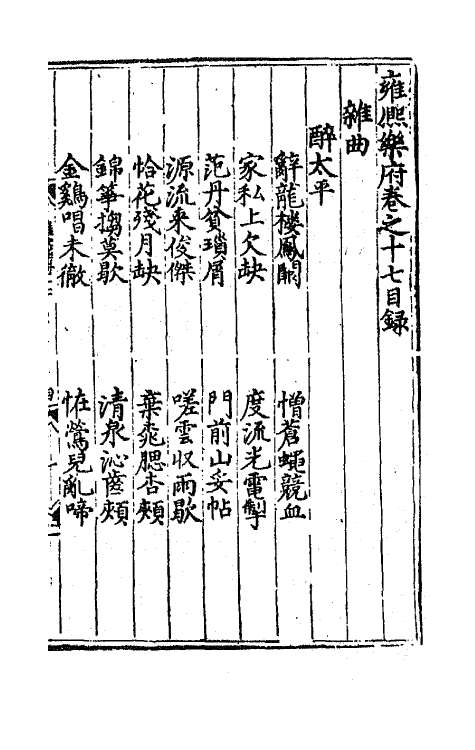 雍熈樂府卷之十七目録
雜曲
醉太平
辭龍楼鳳闕 憎蒼蠅競血
家私上欠缺 度流光電掣
范丹貧瑣屑 門前山妥帖
源流来俊傑 嗟雲収雨歇
恰花殘月缺 葉兆腮杏頰
錦筝搊莫歇 清泉沁齒頰
金鷄唱未徹 恠鶯兒亂啼